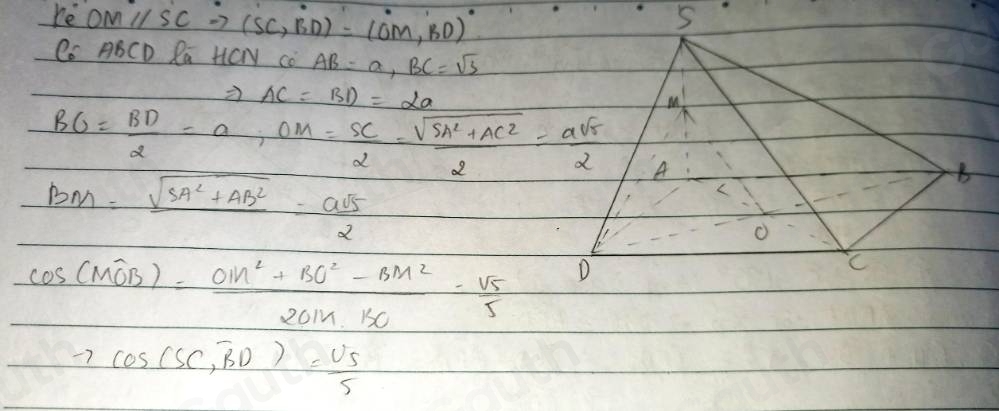 Kẻ OM // SC → (SC, BD) = (OM, BD)
Có ABCD là HCN có AB = a, BC = √3
⇒ AC = BD = 2a
BO = BD/2 = a ; OM = SC/2 = √(SA² + AC²)/2 = a√5/2
BM = √(SA² + AB²) = a√5/2
cos(MÔB) = (OM² + BO² − BM²)/(2OM. BO) = √5/5
→ cos(SC, BD) = √5/5
S
M
A
B
O
D
C